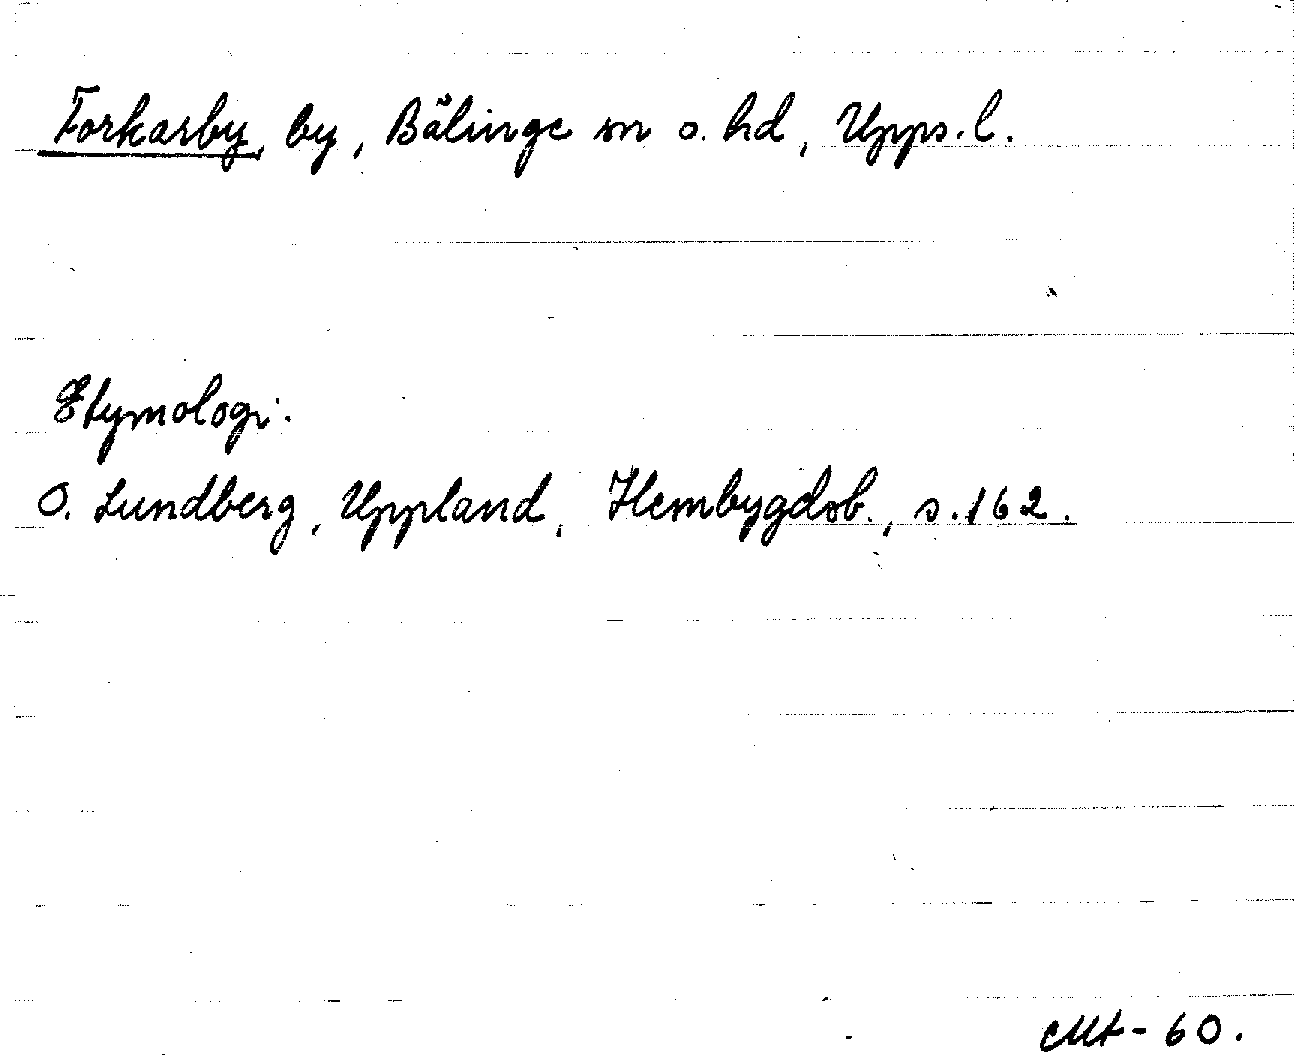 Forkarby, by, Bälinge sn o. hd, Upps. l.
Etymologi.
O. Lundberg, Uppland, Hembygdsb., s. 162.
Mt - 60.